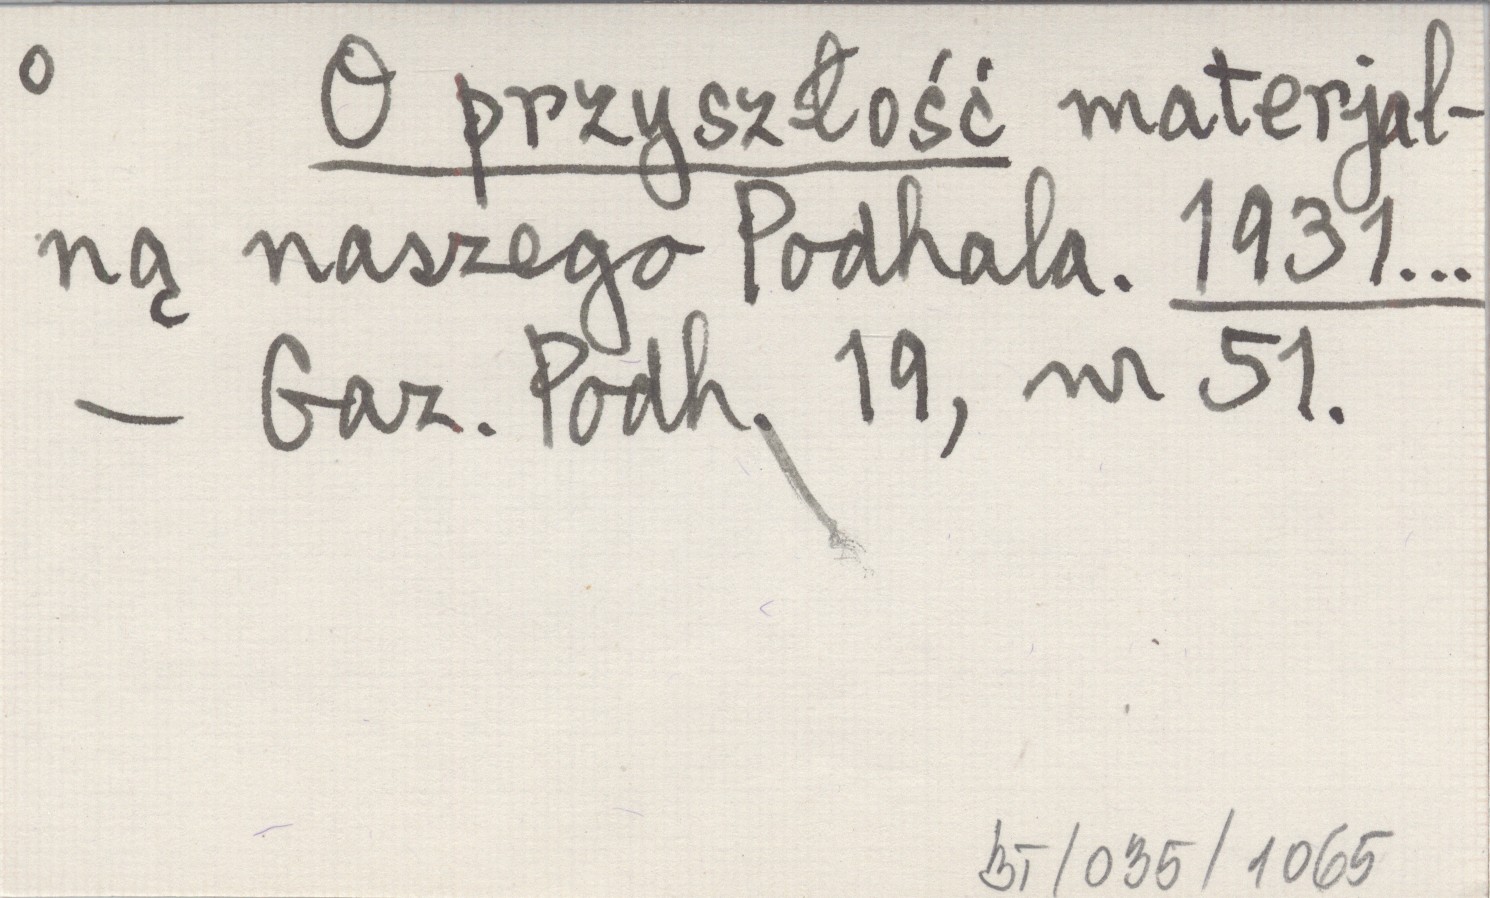 o O przyszłość materjal-
ną naszego Podhala. 1931...
— Gaz. Podh. 19, nr 51.
BT/035/1065